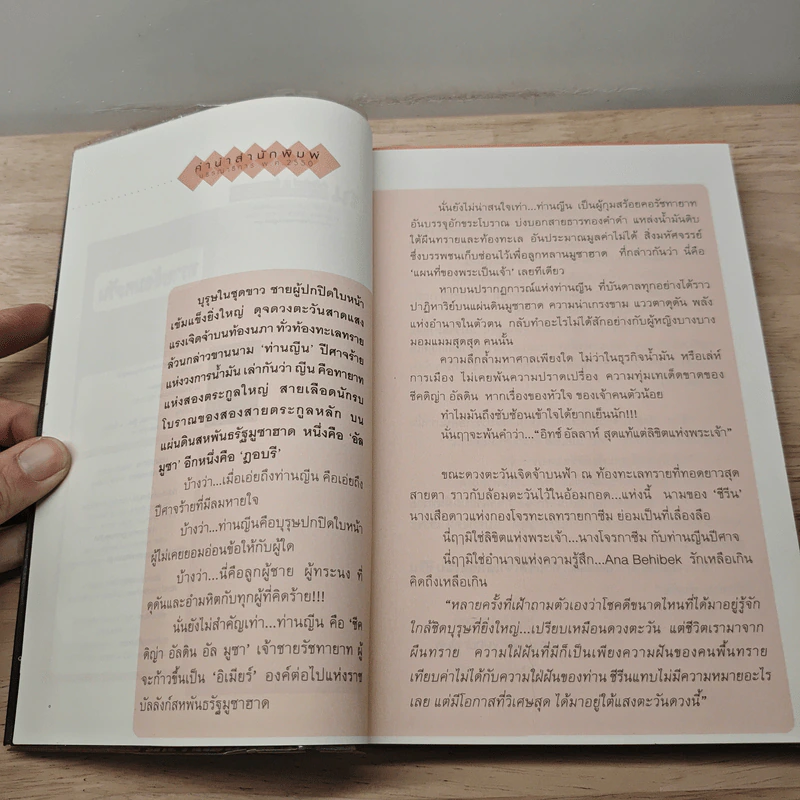 คำนำสำนักพิมพ์
บุรุษในชุดขาว ชายผู้ปกปิดใบหน้า
เข้มแข็งยิ่งใหญ่ ดุจดวงตะวันสาดแสง
แรงเจิดจ้าบนท้องนภา ทั่วท้องทะเลทราย
ล้วนกล่าวขานนาม ‘ท่านญีน’ ปีศาจร้าย
แห่งวงการน้ำมัน เล่ากันว่า ญีน คือทายาท
แห่งสองตระกูลใหญ่ สายเลือดนักรบ
โบราณของสองสายตระกูลหลัก บน
แผ่นดินสหพันธรัฐมูซาฮาด หนึ่งคือ ‘อัล
มูซา’ อีกหนึ่งคือ ‘ฎอบรี’
บ้างว่า...เมื่อเอ่ยถึงท่านญีน คือเอ่ยถึง
ปีศาจร้ายที่มีลมหายใจ
บ้างว่า...ท่านญีนคือบุรุษปกปิดใบหน้า
ผู้ไม่เคยยอมอ่อนข้อให้กับผู้ใด
บ้างว่า...นี่คือลูกผู้ชาย ผู้ทระนง ที่
ดุดันและอำมหิตกับทุกผู้ที่คิดร้าย!!!
นั่นยังไม่สำคัญเท่า...ท่านญีน คือ ‘ชีค
ดิญ่า อัลดิน อัล มูซา’ เจ้าชายรัชทายาท ผู้
จะก้าวขึ้นเป็น ‘อิเมียร์’ องค์ต่อไปแห่งราช
บัลลังก์สหพันธรัฐมูซาฮาด
นั่นยังไม่น่าสนใจเท่า...ท่านญีน เป็นผู้กุมสร้อยคอรัชทายาท
อันบรรจุอักขระโบราณ บ่งบอกสายธารทองคำดำ แหล่งน้ำมันดิบ
ใต้ผืนทรายและท้องทะเล อันประมาณมูลค่าไม่ได้ สิ่งมหัศจรรย์
ซึ่งบรรพชนเก็บซ่อนไว้เพื่อลูกหลานมูซาฮาด ที่กล่าวกันว่า นี่คือ
‘แผนที่ของพระเป็นเจ้า’ เลยทีเดียว
หากบนปรากฏการณ์แห่งท่านญีน ที่บันดาลทุกอย่างได้ราว
ปาฏิหาริย์บนแผ่นดินมูซาฮาด ความน่าเกรงขาม แววตาดุดัน พลัง
แห่งอำนาจในตัวตน กลับทำอะไรไม่ได้สักอย่างกับผู้หญิงบางบาง
มอมแมมสุดสุด คนนั้น
ความลึกล้ำมหาศาลเพียงใด ไม่ว่าในธุรกิจน้ำมัน หรือเล่ห์
การเมือง ไม่เคยพ้นความปราดเปรื่อง ความทุ่มเทเด็ดขาดของ
ชีคดิญ่า อัลดิน หากเรื่องของหัวใจ ของเจ้าคนตัวน้อย
ทำไมมันถึงซับซ้อนเข้าใจได้ยากเย็นนัก!!!
นั่นฤๅจะพ้นคำว่า...“อิทซ์ อัลลาห์ สุดแท้แต่ลิขิตแห่งพระเจ้า”
ขณะดวงตะวันเจิดจ้าบนฟ้า ณ ท้องทะเลทรายที่ทอดยาวสุด
สายตา ราวกับล้อมตะวันไว้ในอ้อมกอด...แห่งนี้ นามของ ‘ชีรีน’
นางเสือดาวแห่งกองโจรทะเลทรายกาซีม ย่อมเป็นที่เลื่องลือ
นี่ฤๅมิใช่ลิขิตแห่งพระเจ้า...นางโจรกาซีม กับท่านญีนปีศาจ
นี่ฤๅมิใช่อำนาจแห่งความรู้สึก...Ana Behibek รักเหลือเกิน
คิดถึงเหลือเกิน
“หลายครั้งที่เฝ้าถามตัวเองว่าโชคดีขนาดไหนที่ได้มาอยู่รู้จัก
ใกล้ชิดบุรุษที่ยิ่งใหญ่...เปรียบเหมือนดวงตะวัน แต่ชีวิตเรามาจาก
ผืนทราย ความใฝ่ฝันที่มีก็เป็นเพียงความฝันของคนพื้นทราย
เทียบค่าไม่ได้กับความใฝ่ฝันของท่าน ชีรีนแทบไม่มีความหมายอะไร
เลย แต่มีโอกาสที่วิเศษสุด ได้มาอยู่ใต้แสงตะวันดวงนี้”